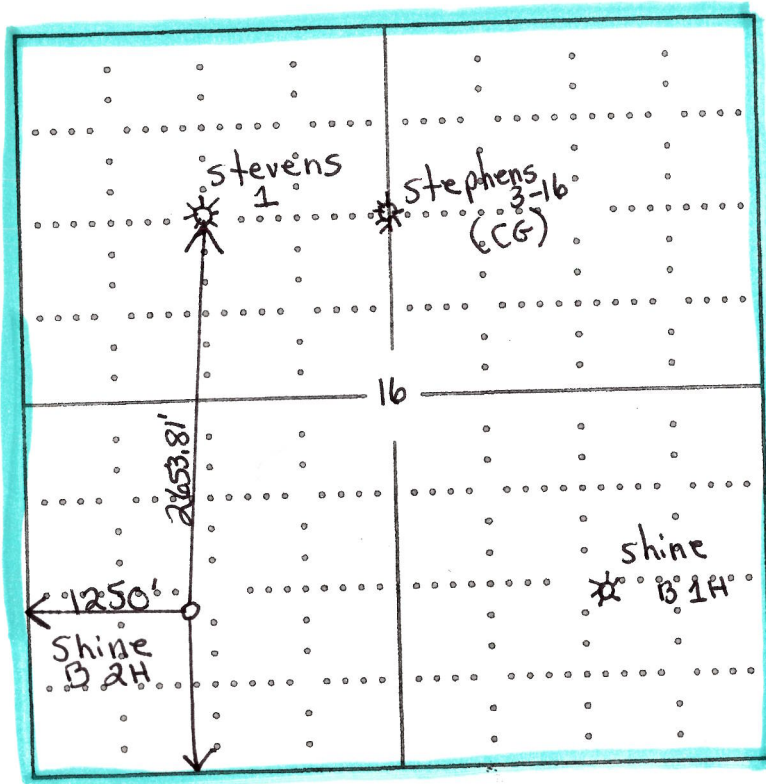 stevens
1
stephens
3-16
(CG)
16
2653.81'
1250'
Shine
B 2H
shine
B 1H